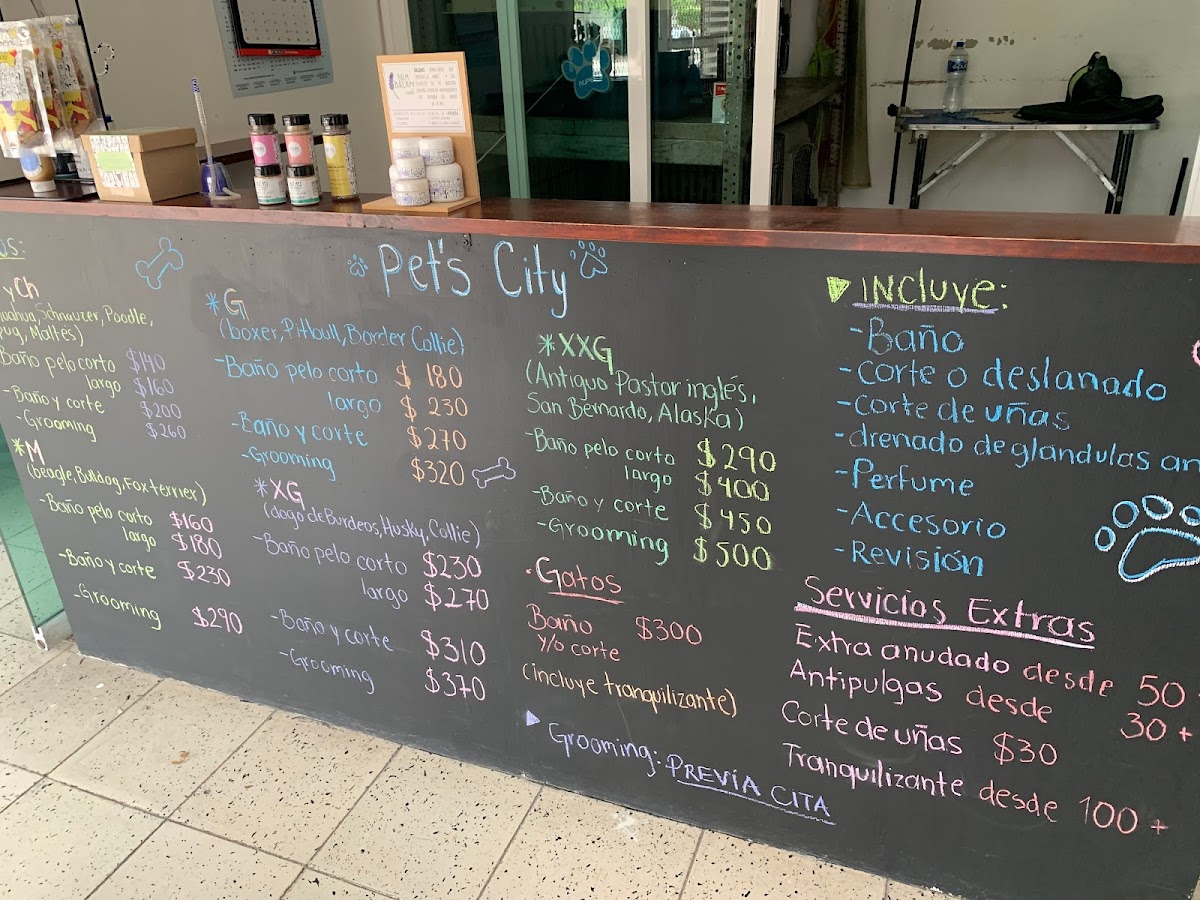 Pet's City
yCh
Schnauzer, Poodle,
pug, Maltés)
Baño pelo corto $140
largo $160
-Baño y corte $200
-Grooming $260
*M
(beagle, Bulldog, Fox terrier)
-Baño pelo corto $160
largo $180
-Baño y corte $230
-Grooming $290
*G
(boxer, Pitbull, Border Collie)
-Baño pelo corto $180
largo $230
-Baño y corte $270
-Grooming $320
*XG
(dogo de Burdeos, Husky, Collie)
-Baño pelo corto $230
largo $270
-Baño y corte $310
-Grooming $370
*XXG
(Antiguo Pastor inglés,
San Bernardo, Alaska)
-Baño pelo corto $290
largo $400
-Baño y corte $450
-Grooming $500
·Gatos
Baño $300
y/o corte
(incluye tranquilizante)
Grooming: PREVIA CITA
INCLUYE:
-Baño
-Corte o deslanado
-Corte de uñas
-drenado de glandulas an
-Perfume
-Accesorio
-Revisión
Servicios Extras
Extra anudado desde 50
Antipulgas desde 30+
Corte de uñas $30
Tranquilizante desde 100+